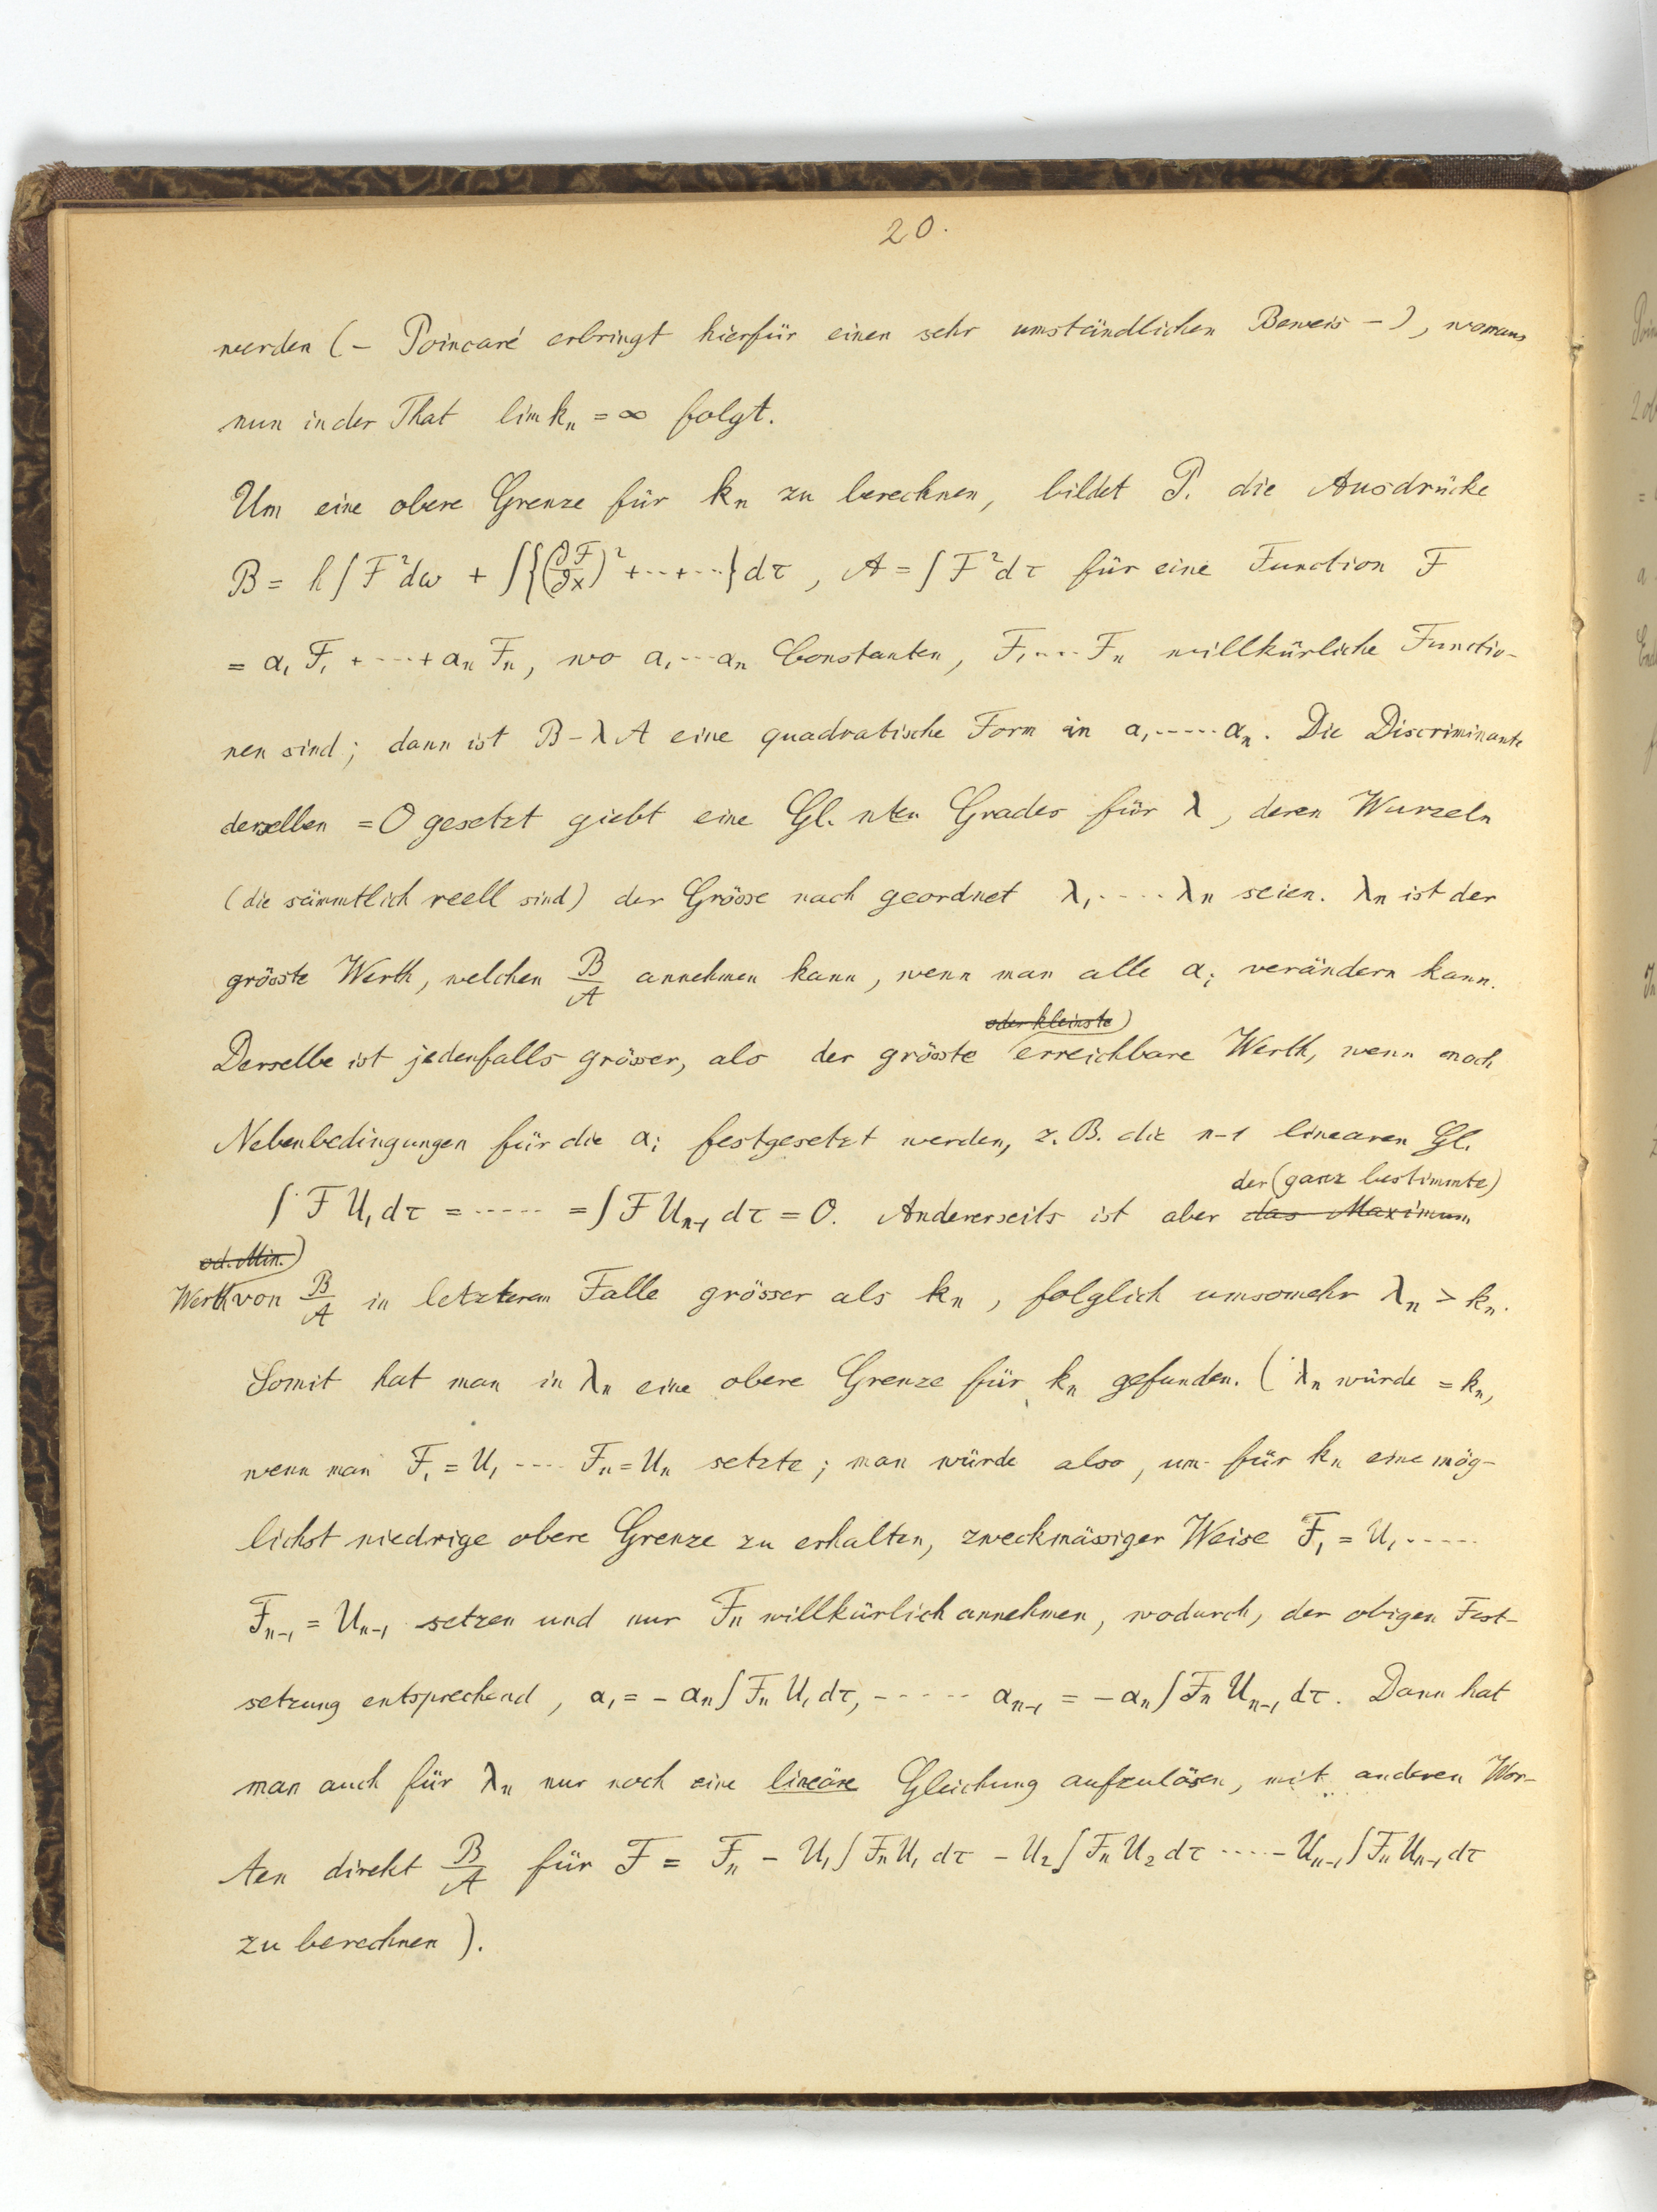 20.
werden (– Poincaré erbringt hierfür einen sehr umständlichen Beweis –), woraus
nun in der That lim kₙ = ∞ folgt.
Um eine obere Grenze für kₙ zu berechnen, bildet P. die Ausdrücke
B = h∫F²dω + ∫{(∂F/∂x)² + ... + ...}dτ, A = ∫F²dτ für eine Function F
= α₁F₁ + ····· + αₙFₙ, wo α₁ ··· αₙ Constanten, F₁ ···· Fₙ willkürliche Functio-
nen sind; dann ist B – λA eine quadratische Form in α₁ ····· αₙ. Die Discriminante
derselben = 0 gesetzt giebt eine Gl. nten Grades für λ, deren Wurzeln
(die sämmtlich reell sind) der Grösse nach geordnet λ₁ ····· λₙ seien. λₙ ist der
grösste Werth, welchen B/A annehmen kann, wenn man alle αᵢ verändern kann.
oder kleinste)
Derselbe ist jedenfalls grösser, als der grösste erreichbare Werth, wenn noch
Nebenbedingungen für die αᵢ festgesetzt werden, z. B. die n–1 linearen Gl.
der (ganz bestimmte)
∫F U₁ dτ = ····· = ∫F Uₙ₋₁ dτ = 0. Andererseits ist aber das Maximum
od. Min.)
Werth von B/A in letzterem Falle grösser als kₙ, folglich umsomehr λₙ > kₙ.
Somit hat man in λₙ eine obere Grenze für kₙ gefunden. (λₙ würde = kₙ,
wenn man F₁ = U₁ ···· Fₙ = Uₙ setzte; man würde also, um für kₙ eine mög-
lichst niedrige obere Grenze zu erhalten, zweckmässiger Weise F₁ = U₁ ·····
Fₙ₋₁ = Uₙ₋₁ setzen und nur Fₙ willkürlich annehmen, wodurch, der obigen Fest-
setzung entsprechend, α₁ = – αₙ∫Fₙ U₁ dτ, – ····· αₙ₋₁ = – αₙ∫Fₙ Uₙ₋₁ dτ. Dann hat
man auch für λₙ nur noch eine lineäre Gleichung aufzulösen, mit anderen Wor-
ten direkt B/A für F = Fₙ – U₁∫FₙU₁ dτ – U₂∫FₙU₂ dτ ····· – Uₙ₋₁∫FₙUₙ₋₁ dτ
zu berechnen).